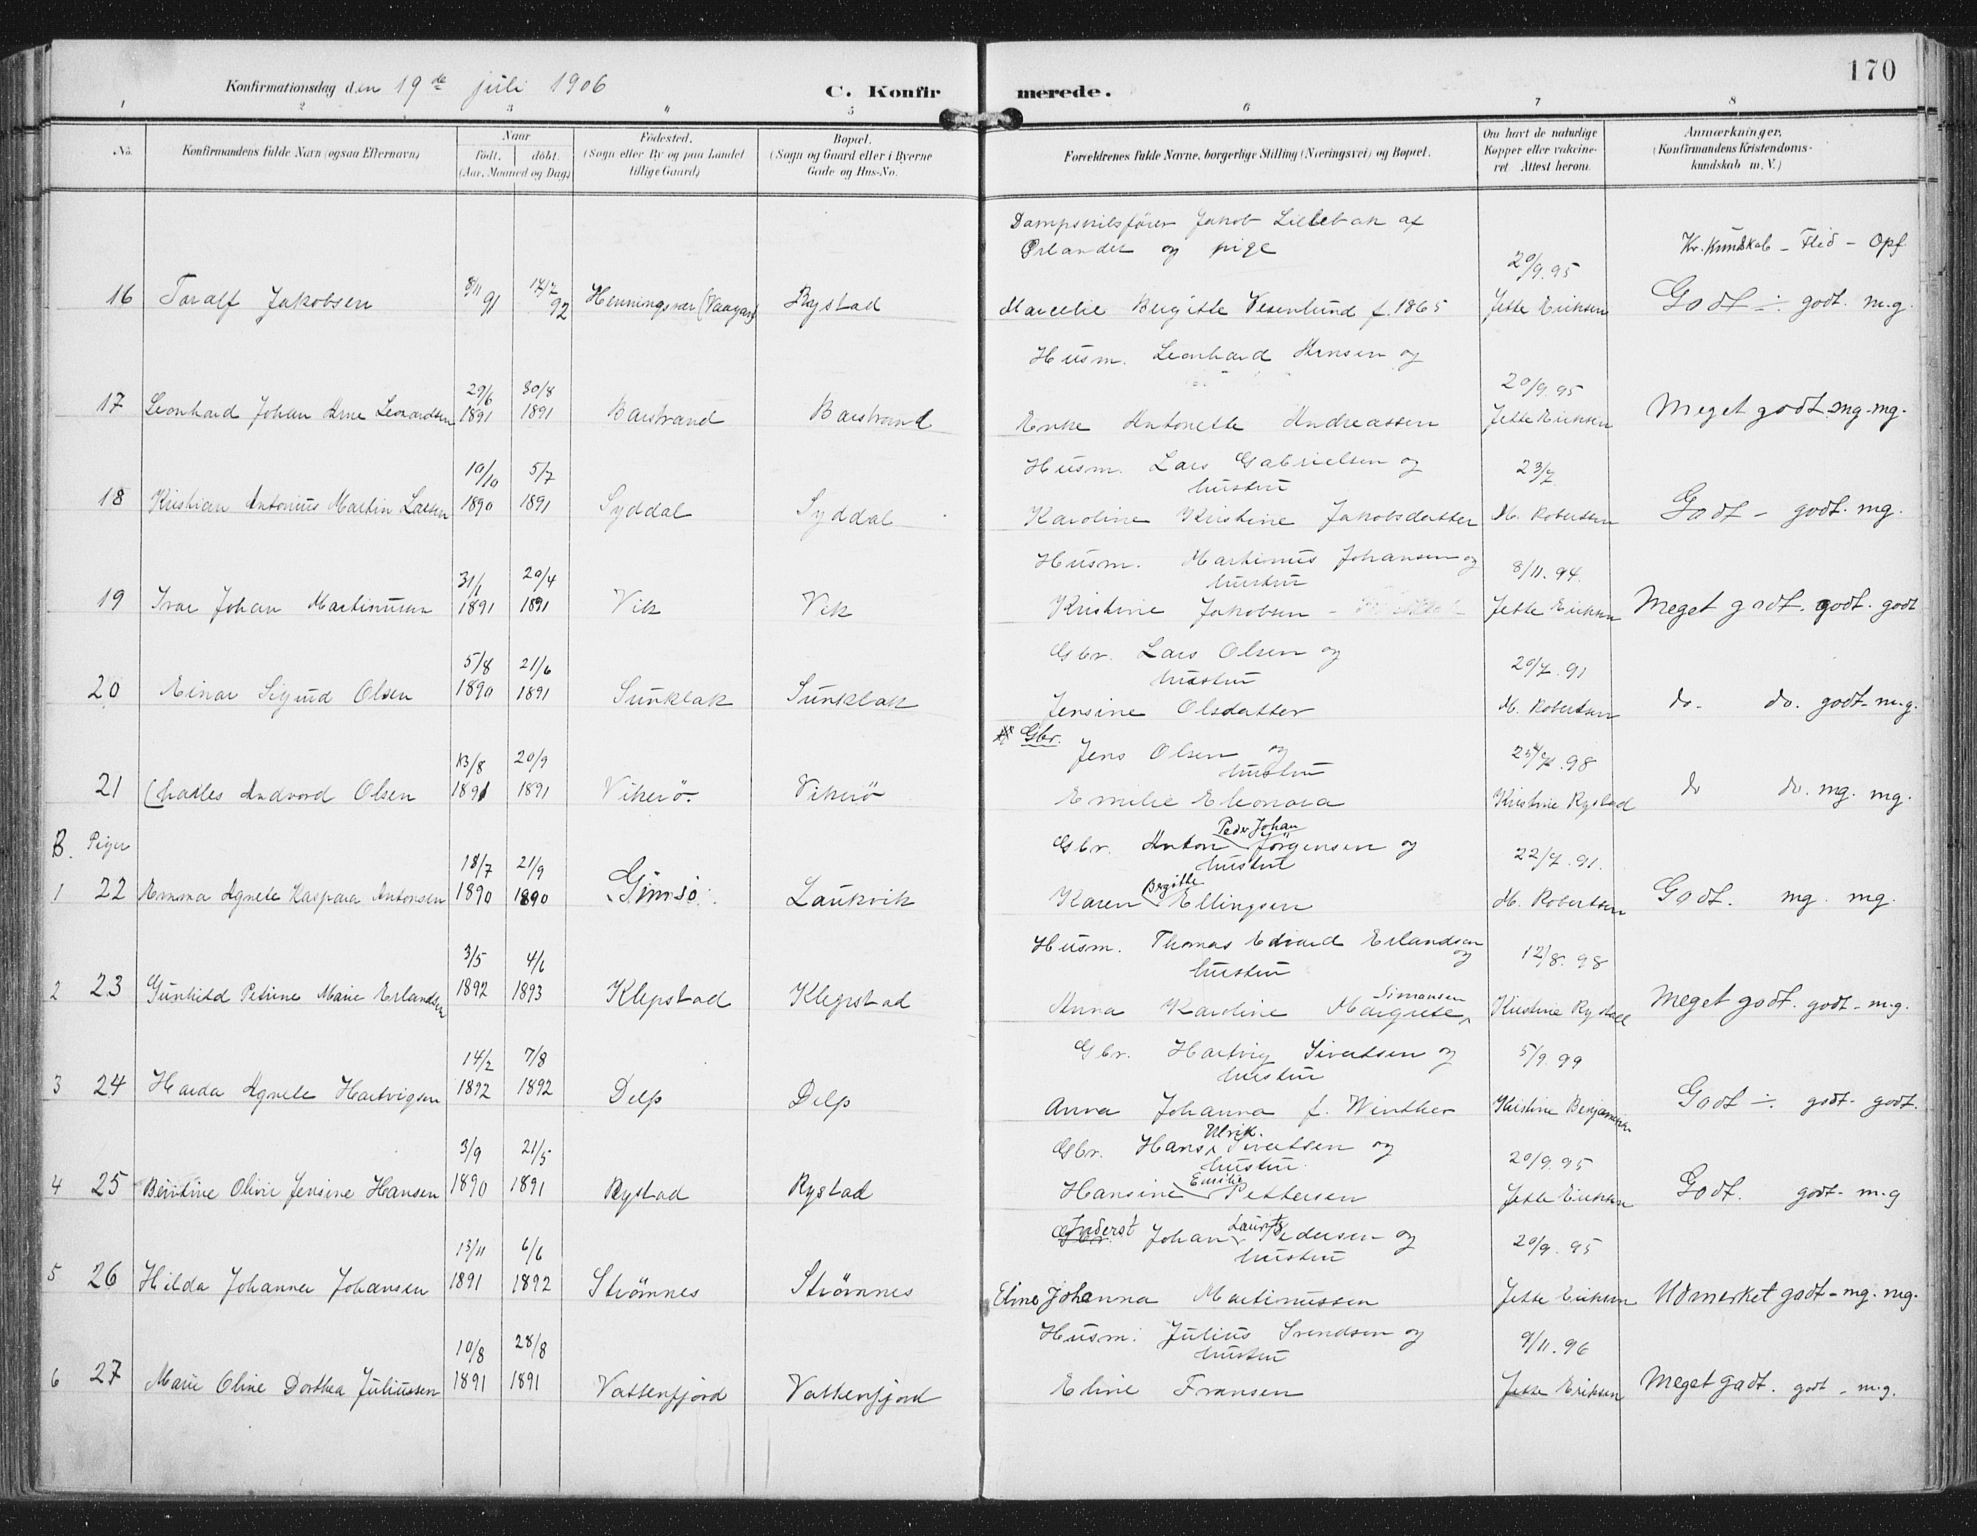 170
Konfirmationsdag den 19de juli 1906 C. Konfirmerede.
1 2 3 4 5 6 7 8
No. Konfirmandens fulde Navn (ogsaa Efternavn) Naar født. døbt. (Aar, Maaned og Dag) Fødested. (Sogn eller By og paa Landet tillige Gaard) Bopæl. (Sogn og Gaard eller i Byerne Gade og Hus-No. Forældrenes fulde Navne, borgerlige Stilling (Næringsvei) og Bopæl. Om havt de naturlige Kopper eller vakcineret Attest herom. Anmærkninger, (Konfirmandens Kristendomskundskab m. V.)
Dampskibsfører Jakob Lillebak af
Ørlandet og pige 20/9.95 Kr. Kundskab - Flid - Opf.
16 Toralf Jakobsen 8/11 91 17/2 92 Henningsvær (Vaagan) Rystad Marcelie Birgitte Vesenlund f. 1865 Jette Eriksen Godt -:- godt. m.g.
Husm. Leonhard Hansen og
29/6 30/8 20/9.95
17 Leonhard Johan Arne Leonardsen 1891 1891 Barstrand Barstrand Enke Antonette Andreassen Jette Eriksen Meget godt. mg. mg.
19/10 5/7 Husm. Lars Gabrielsen og 23/7
hustru
18 Kristian Antonius Martin Larsen 1890 1891 Syddal Syddal Karoline Kristine Jakobsdatter M. Robertsen Godt - godt. mg.
31/1 20/4 Husm. Martinus Johansen og 8/11.94.
hustru
19 Ivar Johan Martinusen 1891 1891 Vik Vik Kristine Jakobsen - Jette Eriksen Meget godt. godt. godt
5/8 21/6 Gbr. Lars Olsen og 20/7.91
hustru
20 Einar Sigurd Olsen 1890 1891 Sunklak Sunklak Jensine Olsdatter M. Robertsen do. do. godt - m.g.
13/8 20/9 Gbr. Jens Olsen og 98
hustru
21 Charles Andvord Olsen 1891 1891 Vikerø Vikerø Emilie Eleonora Kristine Rystad do do. mg. mg.
B. Piger
18/7 21/9 Gbr. Anton Peder Johan Jørgensen og 22/7.91.
hustru
1 22 Emma Agnete Kaspara Antonsen 1890 1890 Gimsø Laukvik Karen Birgitte Ellingsen M. Robertsen Godt. mg. mg.
3/5 4/6 Husm. Thomas Edvard Erlandsen og 12/8.98
hustru
2 23 Gunhild Petrine Marie Erlandsen 1892 1893 Klepstad Klepstad Anna Karoline Margrete Simonsen Kristine Rystad Meget godt. godt - m.g.
14/2 7/8 Gbr. Hartvig Sivertsen og 5/9.99
hustru
3 24 Harda Agnete Hartvigsen 1892 1892 Delp Delp Anna Johanna f. Winther Kristine Benjaminsen Godt -:- godt. godt.
3/9 21/5 Gbr. Hans Ulrik Sivertsen og 20/9.95
hustru
4 25 Berntine Olivie Jensine Hansen 1890 1891 Rystad Rystad Hansine Emilie Pettersen Jette Eriksen Godt. godt - m.g
13/11 6/6 Inderst Johan Laurits Pedersen og 20/9.95
hustru
5 26 Hilda Johanna Johansen 1891 1892 Strømnes Strømnes Eline Johanna Martinussen Jette Eriksen Udmerket godt - mg. mg.
10/8 28/8 Husm. Julius Svendsen og 9/11.96
hustru
6 27 Marie Oline Dorthea Juliussen 1891 1891 Vatterfjord Vatterfjord Eline Fransen Jette Eriksen Meget godt. godt - m.g.